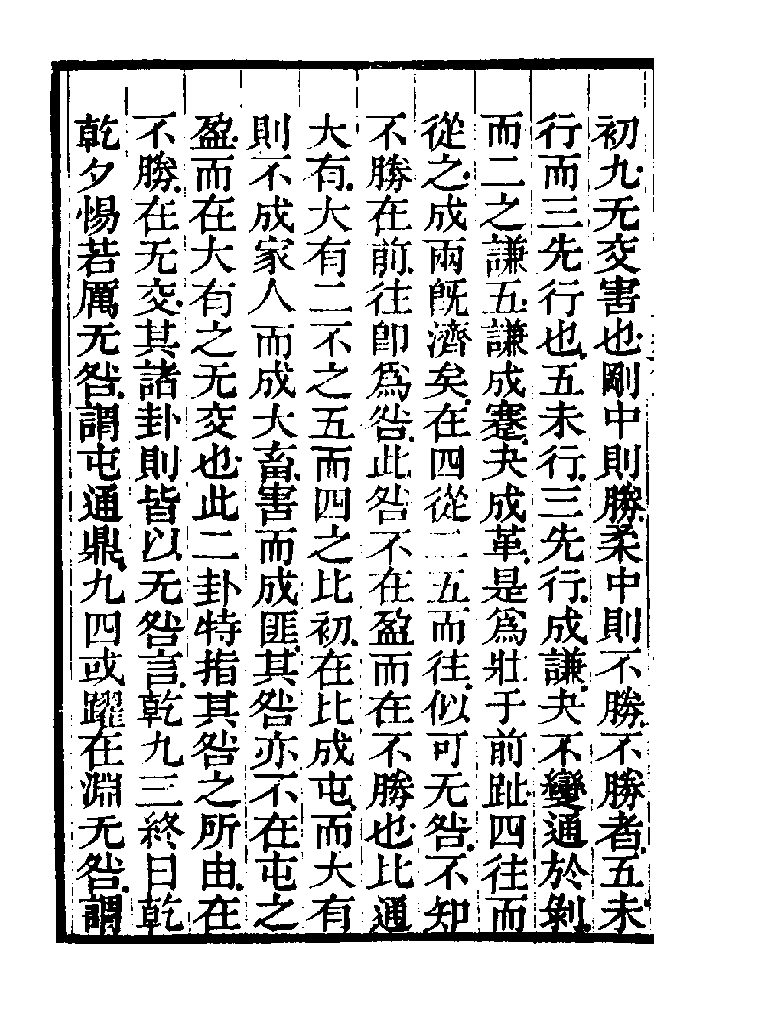 初九无交害也剛中則勝柔中則不勝不勝者五未
行而三先行也五未行三先行成謙夬不變通於剝
而二之謙五謙成蹇夬成革是爲壯于前趾四往而
從之成兩旣濟矣在四從二五而往似可无咎不知
不勝在前往卽爲咎此咎不在盈而在不勝也比通
大有大有二不之五而四之比初在比成屯而大有
則不成家人而成大畜害而成匪其咎亦不在屯之
盈而在大有之无交也此二卦特指其咎之所由在
不勝在无交其諸卦則皆以无咎言乾九三終日乾
乾夕惕若厲无咎謂屯通鼎九四或躍在淵无咎謂